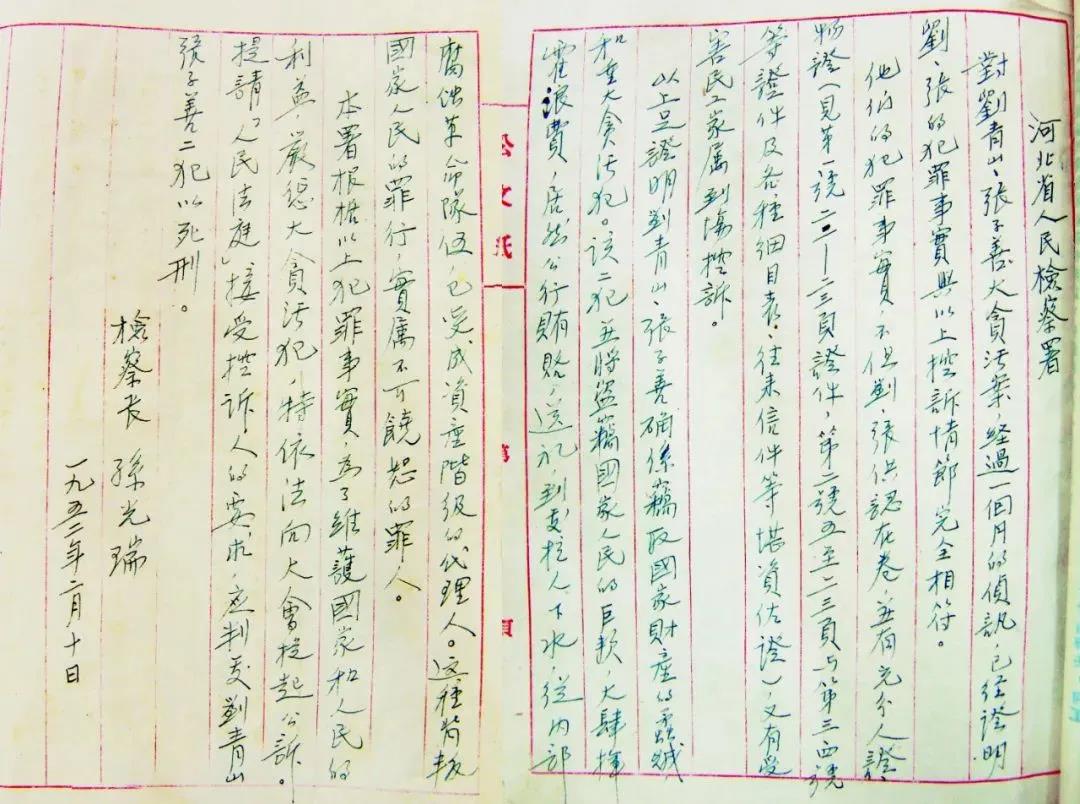 河北省人民檢察署
對劉青山、張子善大貪污案，經過一個月的偵訊，已經證明
劉、張的犯罪事實與以上控訴情節完全相符。
他們的犯罪事實，不但劉、張供認在卷，並有充分人證
物證（見第一號二二—二三頁證件，第二號五至二三頁与第三四號
等證件及各種細目表、往来信件等堪資佐證），又有受
害民工家属到場控訴。
以上足證明劉青山、張子善確係竊取國家財產的蟊賊
和重大貪污犯。該二犯並將盜竊國家人民的巨款，大肆揮
霍浪費，居然公行賄賂，送礼，到處拉人下水，從内部
腐蝕革命隊伍，已变成資産階級的代理人。这種背叛
國家人民的罪行，實属不可饒恕的罪人。
本署根据以上犯罪事實，為了維護國家和人民的
利益，嚴惩大貪污犯，特依法向大會提起公訴。
提請「人民法庭」接受控訴人的要求，应判处劉青山
張子善二犯以死刑。
檢察长 孫光瑞
一九五二年二月十日
公文紙
第
頁